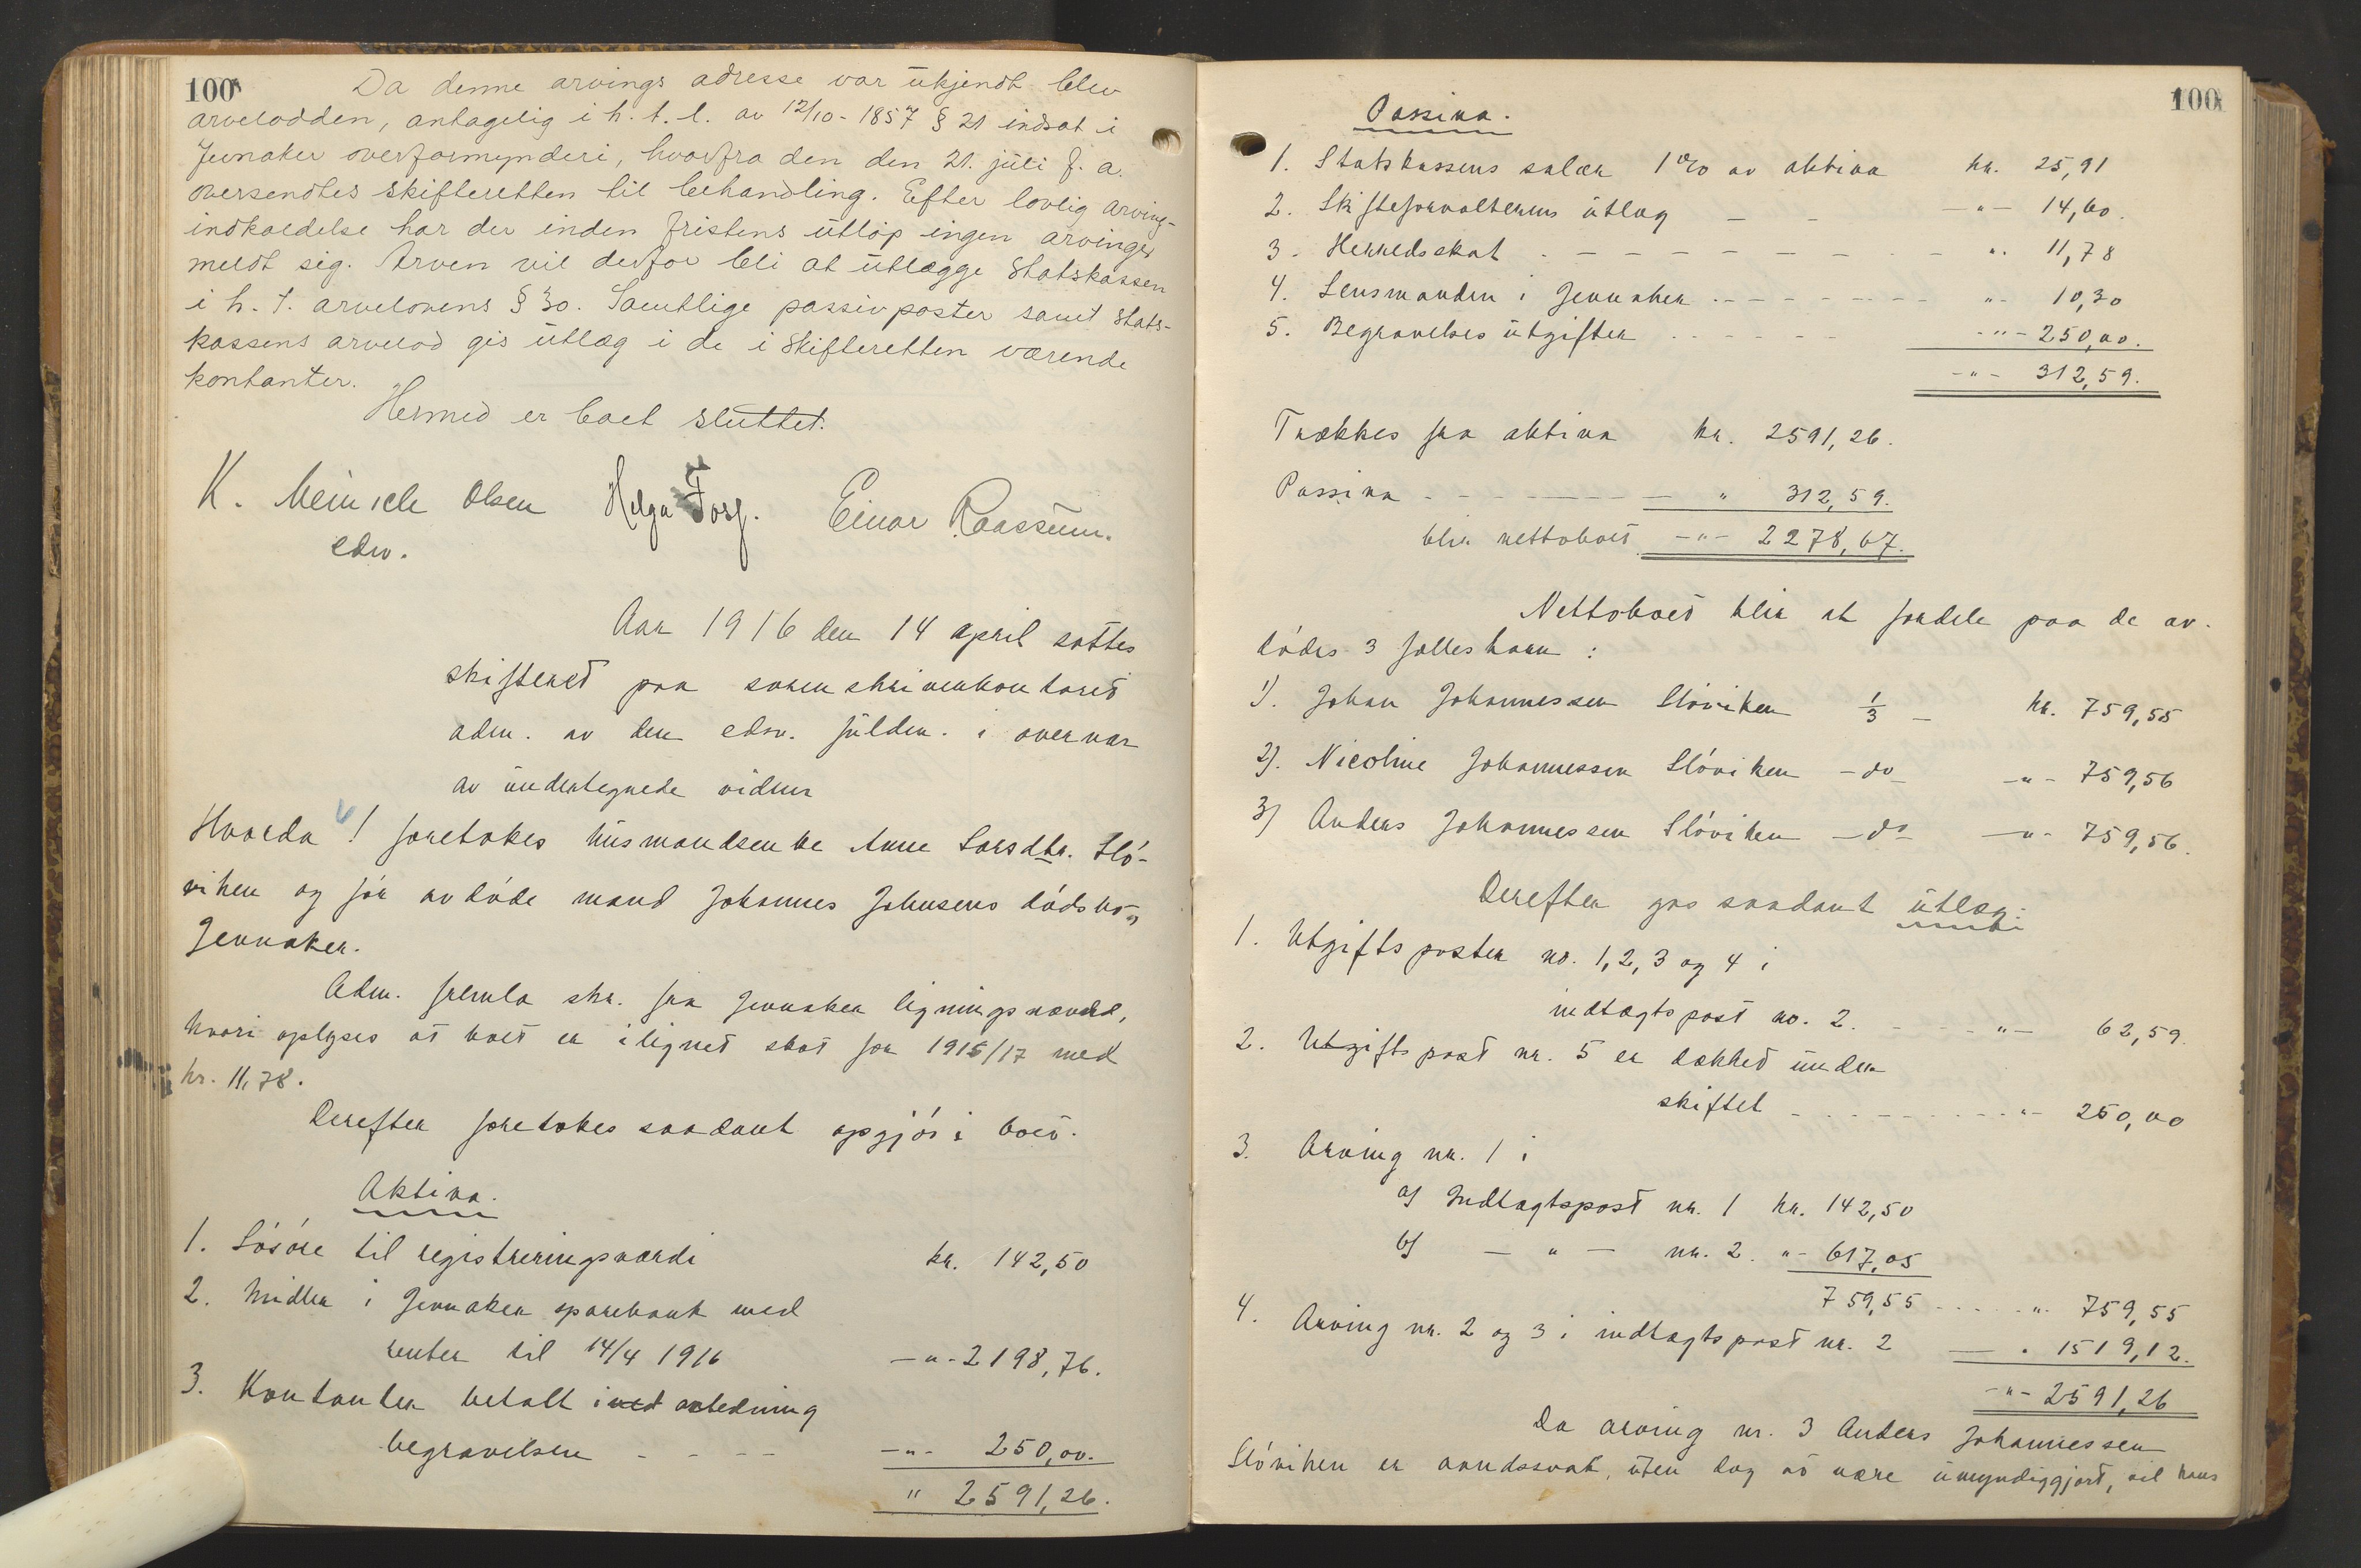 100
Da denne arvings adresse var ukjendt blev
arvelodden, antagelig i h. t. l. av 12/10-1857 § 21 indsat i
Jevnaker overformynderi, hvorfra den den 21. juli f. a.
oversendtes skifteretten til behandling. Efter lovlig arving-
indkaldelse har der inden fristens utløp ingen arvinger
meldt sig. Arven vil derfor bli at utlægge Statskassen
i h. t. arvelovens § 30. Samtlige passivposter samt Stats-
kassens arvelod gis utlæg i de i skifteretten værende
kontanter.
Hermed er boet sluttet.
K. Meinich Olsen Helga Fosf. Einar Raassum.
edsv.
Aar 1916 den 14 april sattes
skifteret paa sorenskriverkontoret
adm. av den edsv. fuldm. i overvær
av undertegnede vidner
Hvorda! foretokes husmandsenke Anne Larsdtr. Slö-
viken og før avdøde mand Johannes Johnsens dødsbo,
Jevnaker.
Adm. fremla skr. fra Jevnaker ligningsnævnd,
hvori oplyses at boet er ilignet skat for 1915/17 med
kr. 11,78.
Derefter foretokes saadant opgjør i boet.
Aktiva.
1. Løsøre til registreringsværdi kr. 142,50
2. Midler i Jevnaker sparebank med
renter til 14/4 1916 -"- 2198,76.
3. Kontanter betalt i anledning
begravelsen - - - - -"- 250,00.
" 2591,26.
100
Passiva.
1. Statskassens salær 1% av aktiva kr. 25,91
2. Skifteforvalterens utlæg - - -"- 14,60.
3. Herredsskat - - - - - - - - " 11,78
4. Lensmanden i Jevnaker - - - - - - "- 10,30
5. Begravelsesutgifter - - - - - -"- 250,00.
-"- 312,59.
Trækkes fra aktiva kr. 2591,26.
Passiva - - - - - - " 312,59.
blir nettoboet -"- 2278,67.
Nettoboet blir at fordele paa de av-
dødes 3 fællesbarn:
1). Johan Johannessen Slöviken 1/3 - kr. 759,55
2). Nicoline Johannessen Slöviken - do - -"- 759,56
3) Anders Johannessen Slöviken - do - -"- 759,56.
Derefter gas saadant utlæg:
1. Utgiftsposter nr. 1, 2, 3 og 4 i
indtægtspost no. 2. - - - - "- 62,59.
2. Utgiftspost nr. 5 er dækket under
skiftet - - - - - - - "- 250,00
3. Arving nr. 1 i
a) Indtægtspost nr. 1 kr. 142,50
b) - " - nr. 2. "- 617,05
759,55 - - - - " 759,55
4. Arving nr. 2 og 3 i indtægtspost nr. 2 - " 1519,12.
-"- 2591,26
Da arving nr. 3 Anders Johannessen
Slöviken er aandssvak, uten dog at være umyndiggjort, vil hans